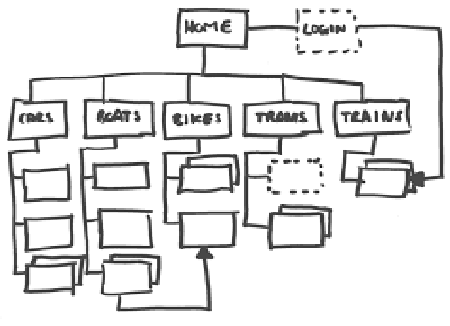 HOME
LOGIN
CARS
BOATS
BIKES
TRAMS
TRAINS